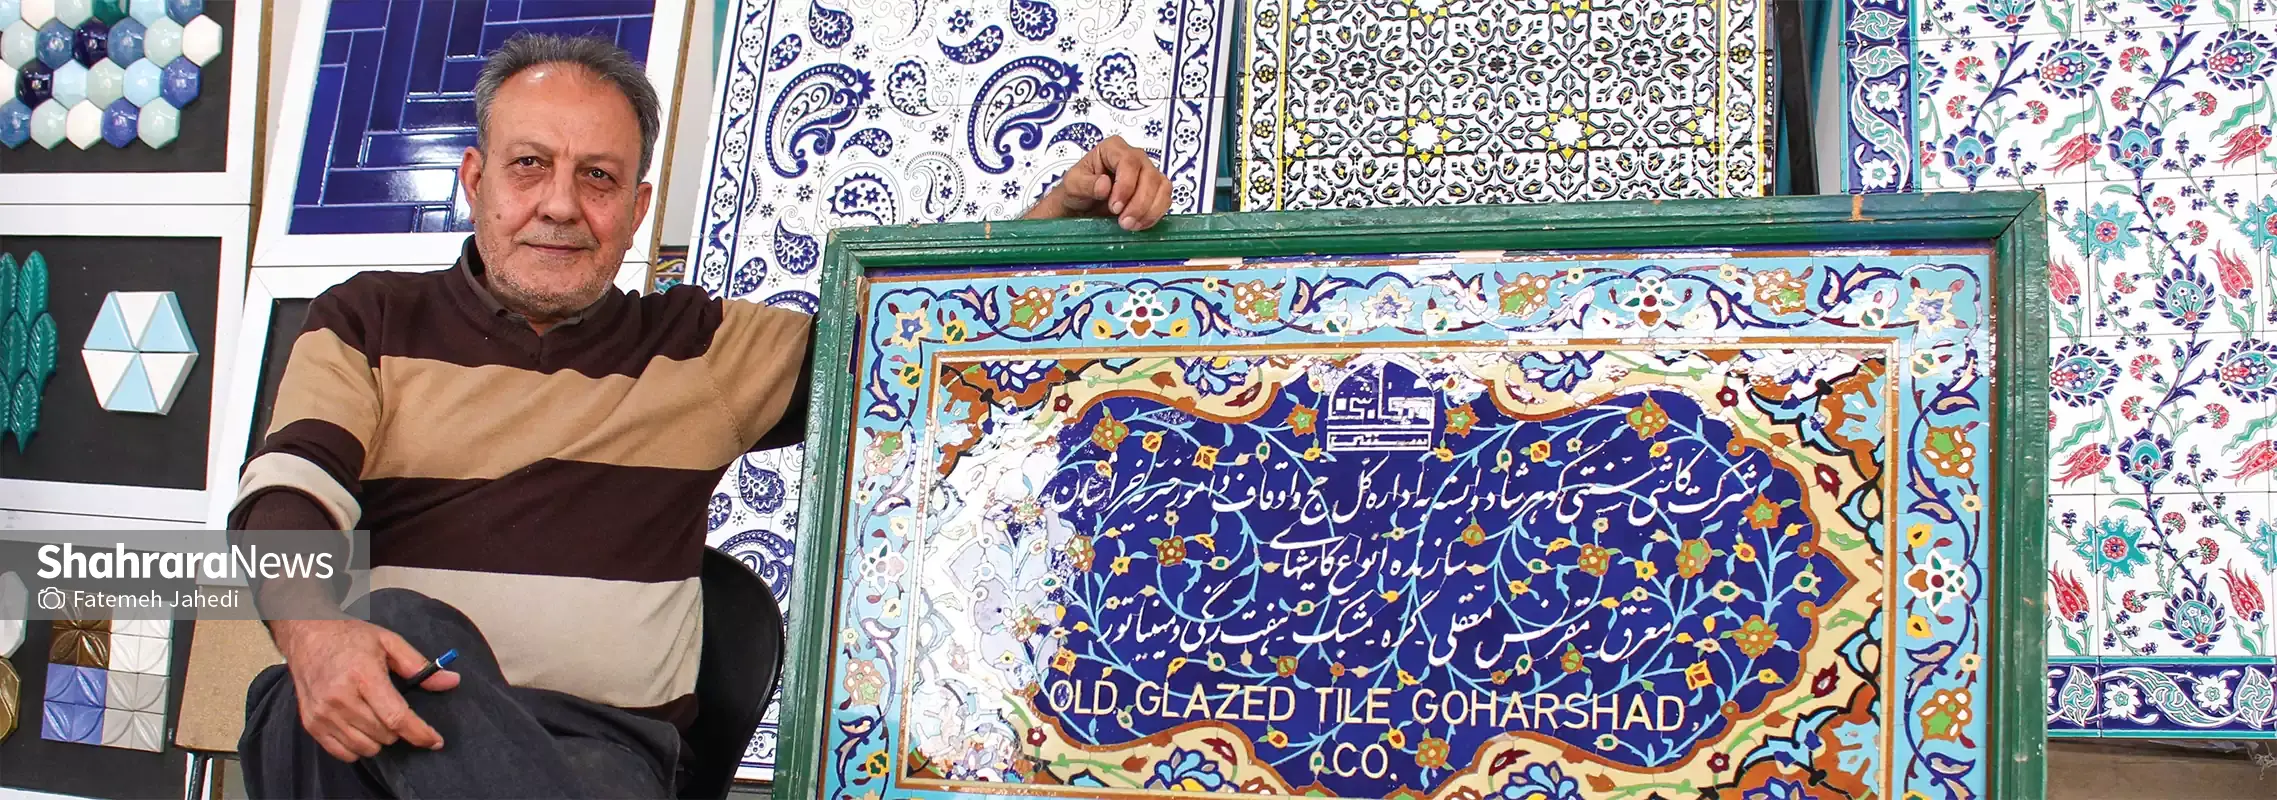 شرکت کاشی سنتی گوهرشاد وابسته به اداره کل حج و اوقاف و امور خیریه خراسان
سازنده انواع کاشیهای
معرق مقرنس معقلی گره مشبک هفت رنگی و مینیاتور
OLD GLAZED TILE GOHARSHAD
CO.
ShahraraNews
Fatemeh Jahedi